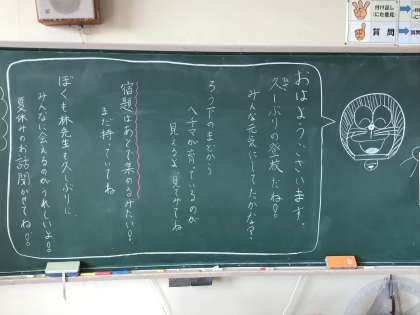 おはようございます。
久しぶりの登校だね!!
ひさ
みんな元気にしてたかな?
ろう下のまどから
ヘチマが育っているのが
見えるよ。見てみてね
宿題はあとで集めるみたい!
まだ持っていてね
ぼくも林先生も久しぶりに
みんなに会えるのがうれしいよ!!
夏休みのお話聞かせてね!!
付け足し
質問
質問